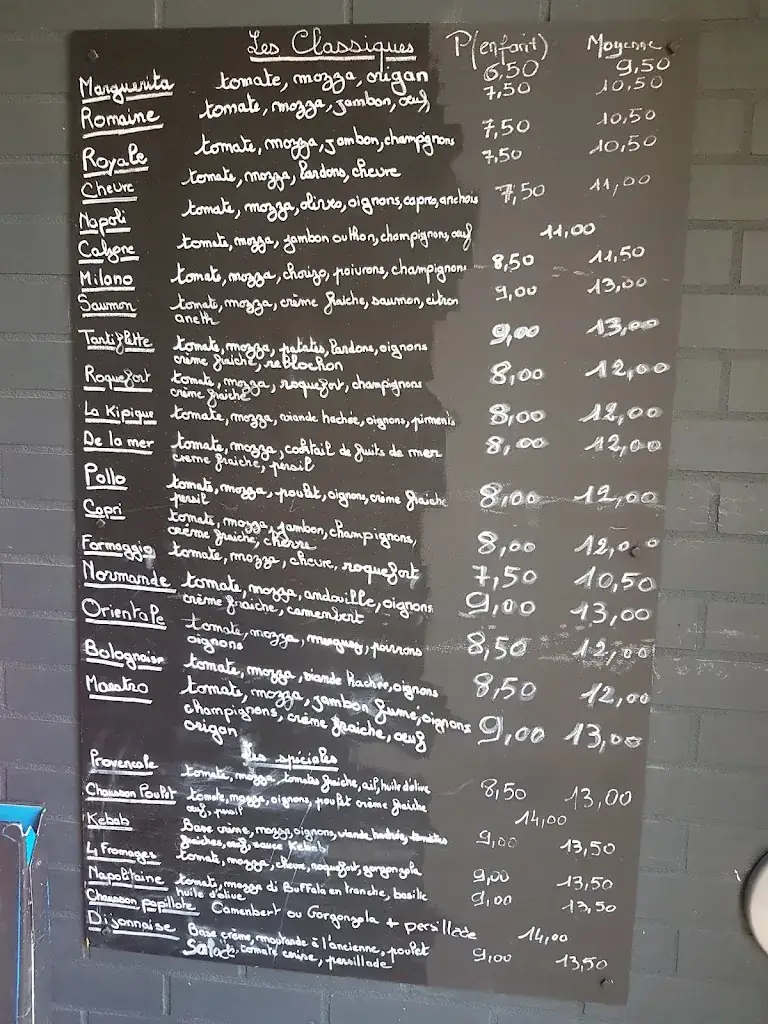 Les Classiques P(enfant) Moyenne
Marguerita tomate, mozza, origan 6,50 9,50
Romaine tomate, mozza, jambon, oeuf 7,50 10,50
Royale tomate, mozza, jambon, champignons 7,50 10,50
Chevre tomate, mozza, lardons, chevre 7,50 10,50
Napoli tomate, mozza, olives, oignons, capres, anchois 7,50 11,00
Calzone tomate, mozza, jambon ou thon, champignons, oeuf 11,00
Milano tomate, mozza, chorizo, poivrons, champignons 8,50 11,50
Saumon tomate, mozza, crème fraiche, saumon, citron 9,00 13,00
aneth
Tartiflette tomate, mozza, patates, lardons, oignons 9,00 13,00
crème fraiche, reblochon
Roquefort tomate, mozza, roquefort, champignons 8,00 12,00
crème fraiche
La Kipique tomate, mozza, viande hachée, oignons, piments 8,00 12,00
De la mer tomate, mozza, cocktail de fruits de mer 8,00 12,00
creme fraiche, persil
Pollo tomate, mozza, poulet, oignons, crème fraiche 8,00 12,00
persil
Capri tomate, mozza, jambon, champignons, 8,00 12,00
crème fraiche, chèvre
Formaggio tomate, mozza, chevre, roquefort 7,50 10,50
Normande tomate, mozza, andouille, oignons 9,00 13,00
crème fraiche, camembert
Orientale tomate, mozza, merguez, poivrons 8,50 12,00
oignons
Bolognaise tomate, mozza, viande hachée, oignons 8,50 12,00
Maestro tomate, mozza, jambon fumé, oignons 9,00 13,00
champignons, crème fraiche, oeuf
origan
Les spéciales
Provencale tomate, mozza, tomates fraiche, ail, huile d'olive 8,50 13,00
Chausson Poulet tomate, mozza, oignons, poulet crème fraiche 14,00
oeuf, persil
Kebab Base crème, mozza, oignons, viande hachée, tomates 9,00 13,50
fraiches, oeuf, sauce Kebab
4 Fromages tomate, mozza, chevre, roquefort, gorgonzola 9,00 13,50
Napolitaine tomate, mozza di Buffala en tranche, basilic 9,00 13,50
huile d'olive
Chausson papillote Camembert ou Gorgonzola + persillade 14,00
Dijonnaise Base crème, moutarde à l'ancienne, poulet 9,00 13,50
Salade, tomate cerise, persillade